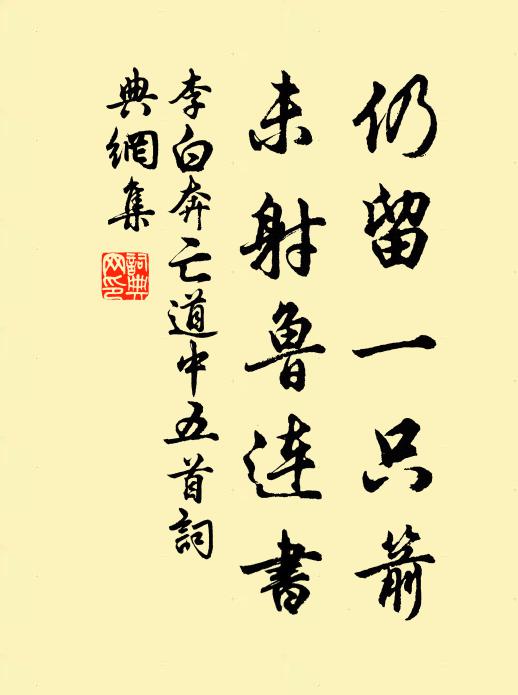 仍留一只箭
未射鲁连書
李白奔亡道中五首詞
典網集
詞典
网印